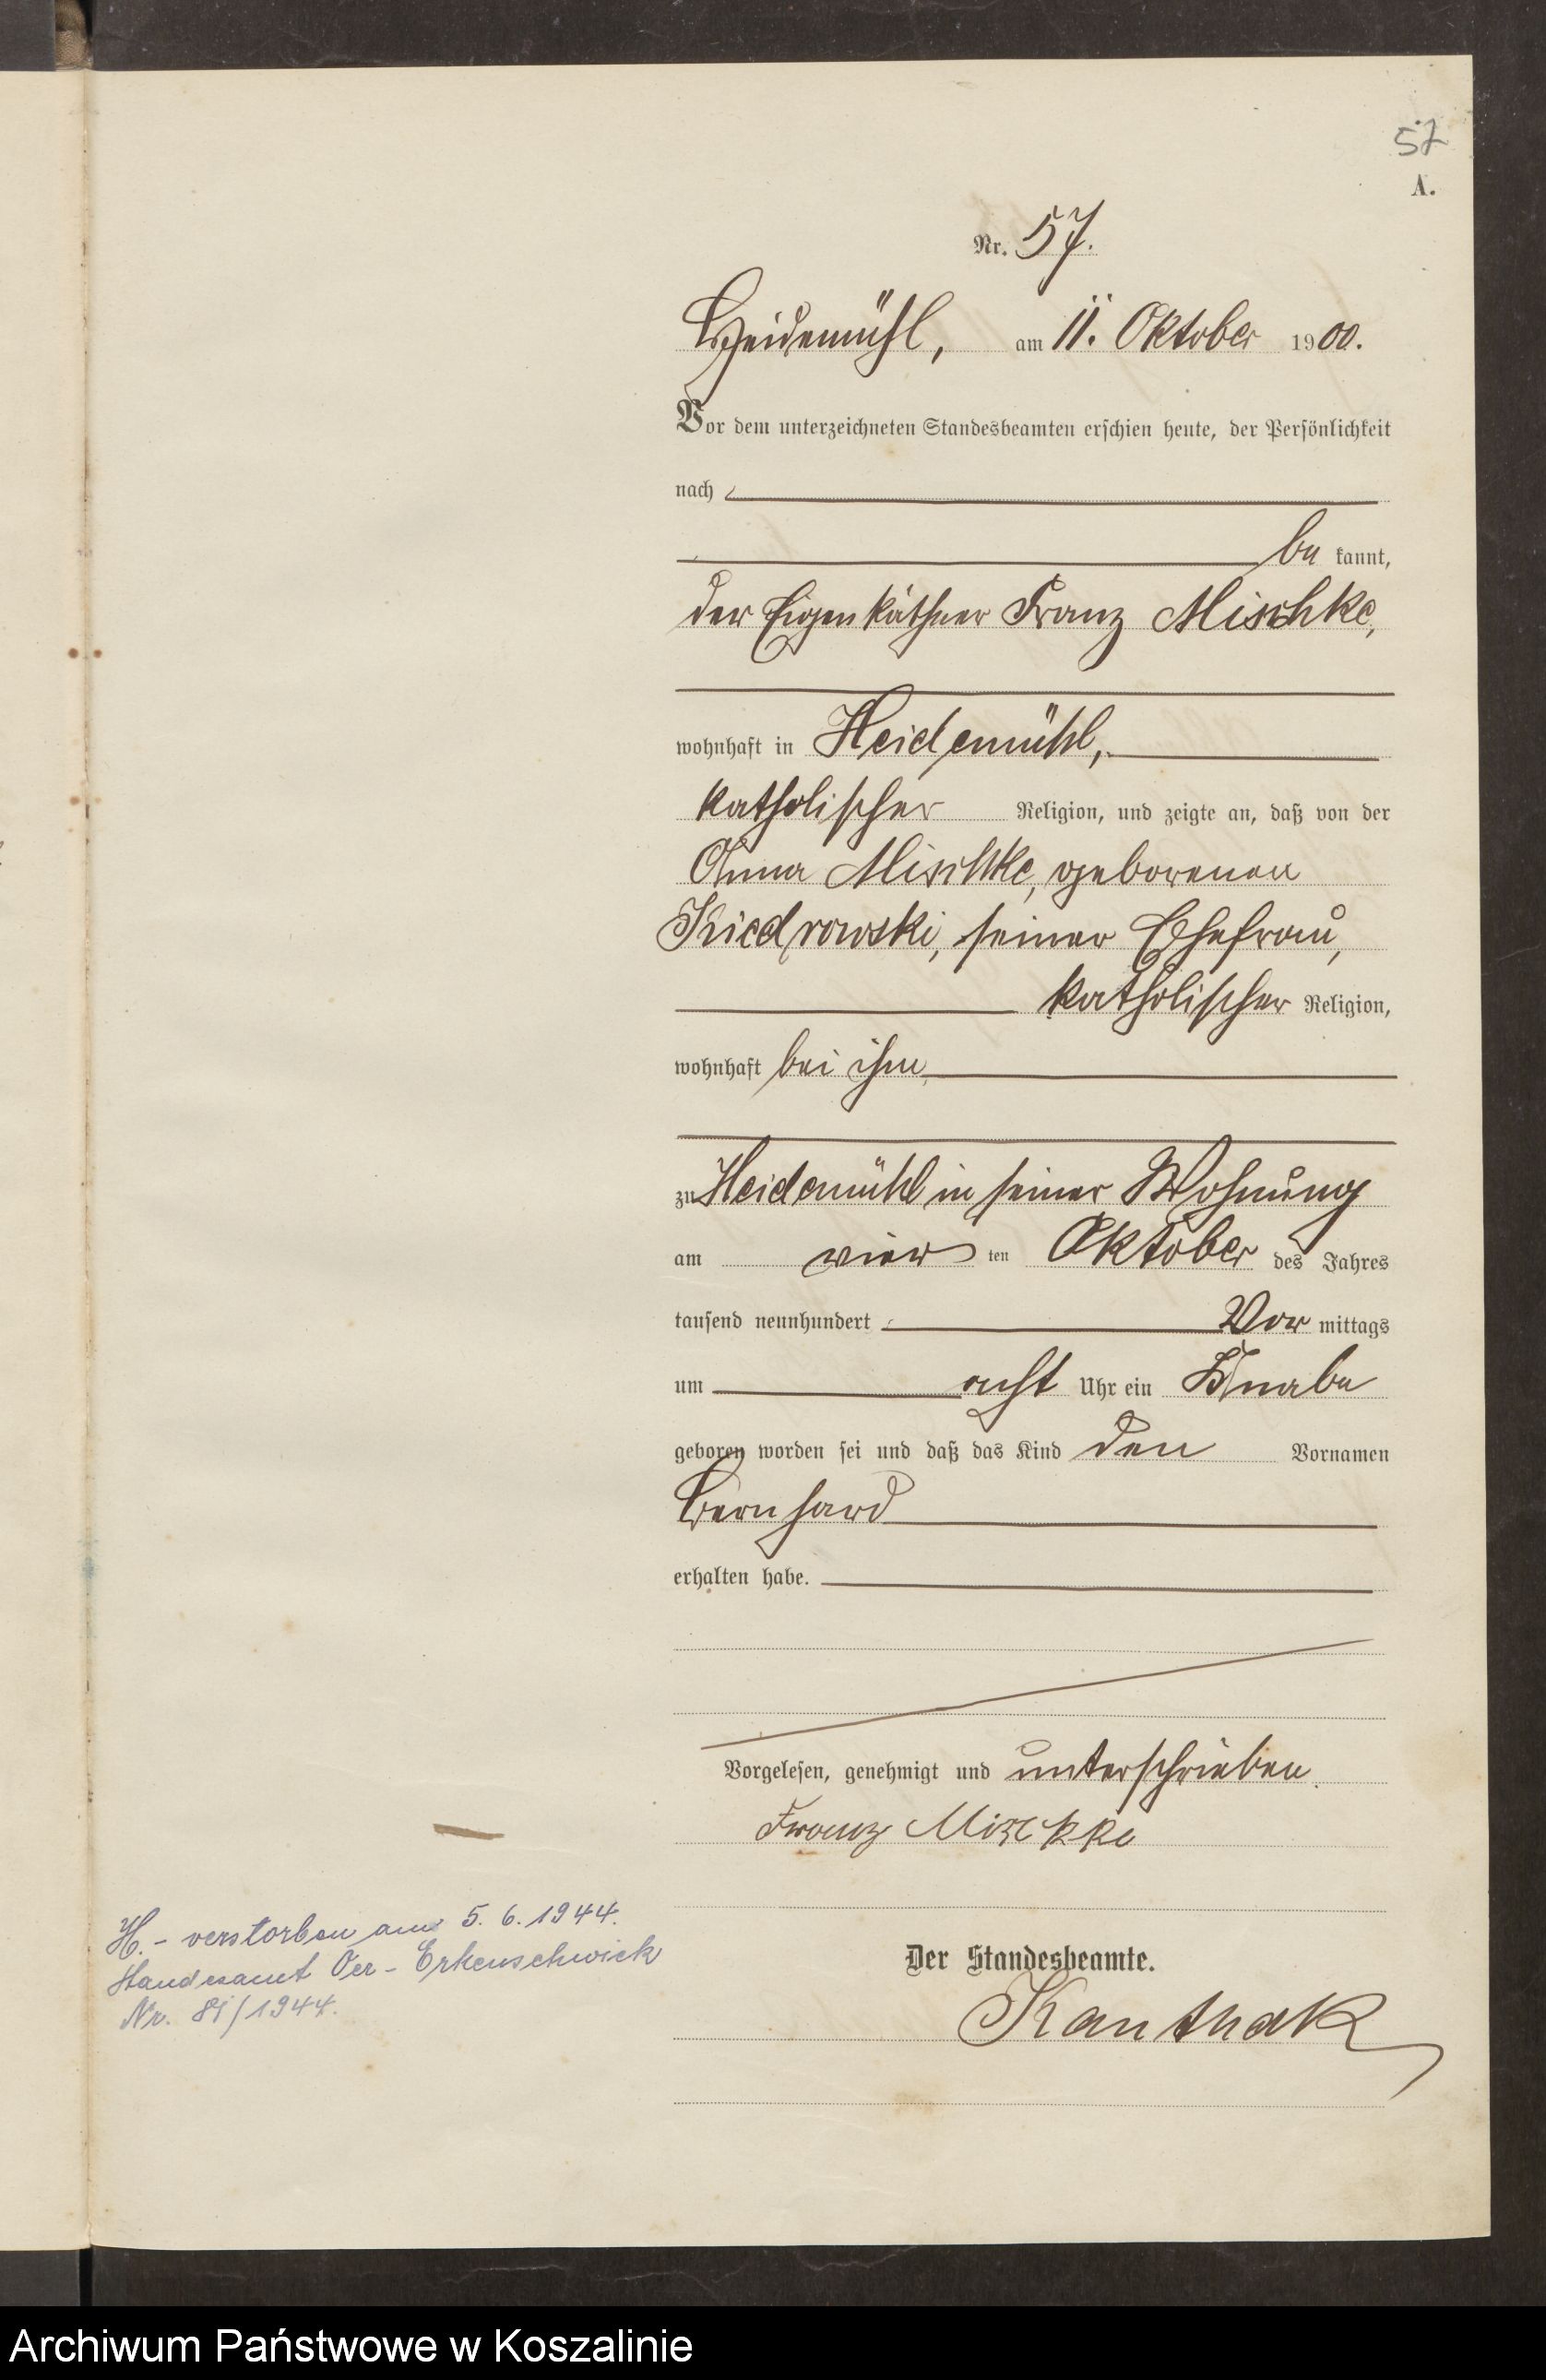 57
A.
Nr. 57.
Heidemühl, am 11. Oktober 1900.
Vor dem unterzeichneten Standesbeamten erschien heute, der Persönlichkeit
nach
be kannt,
der Eigenkäthner Franz Mischke,
wohnhaft in Heidemühl,
katholischer Religion, und zeigte an, daß von der
Anna Mischke, geborenen
Kiedrowski, seiner Ehefrau,
katholischer Religion,
wohnhaft bei ihm
zu Heidemühl in seiner Wohnung
am vier ten Oktober des Jahres
tausend neunhundert Vor mittags
um acht Uhr ein Knabe
geboren worden sei und daß das Kind den Vornamen
Bernhard
erhalten habe.
Vorgelesen, genehmigt und unterschrieben.
Franz Mischke
H. - verstorben am 5. 6. 1944.
Standesamt Oer - Erkenschwick
Nr. 81/1944.
Der Standesbeamte.
Kanthak
Archiwum Państwowe w Koszalinie